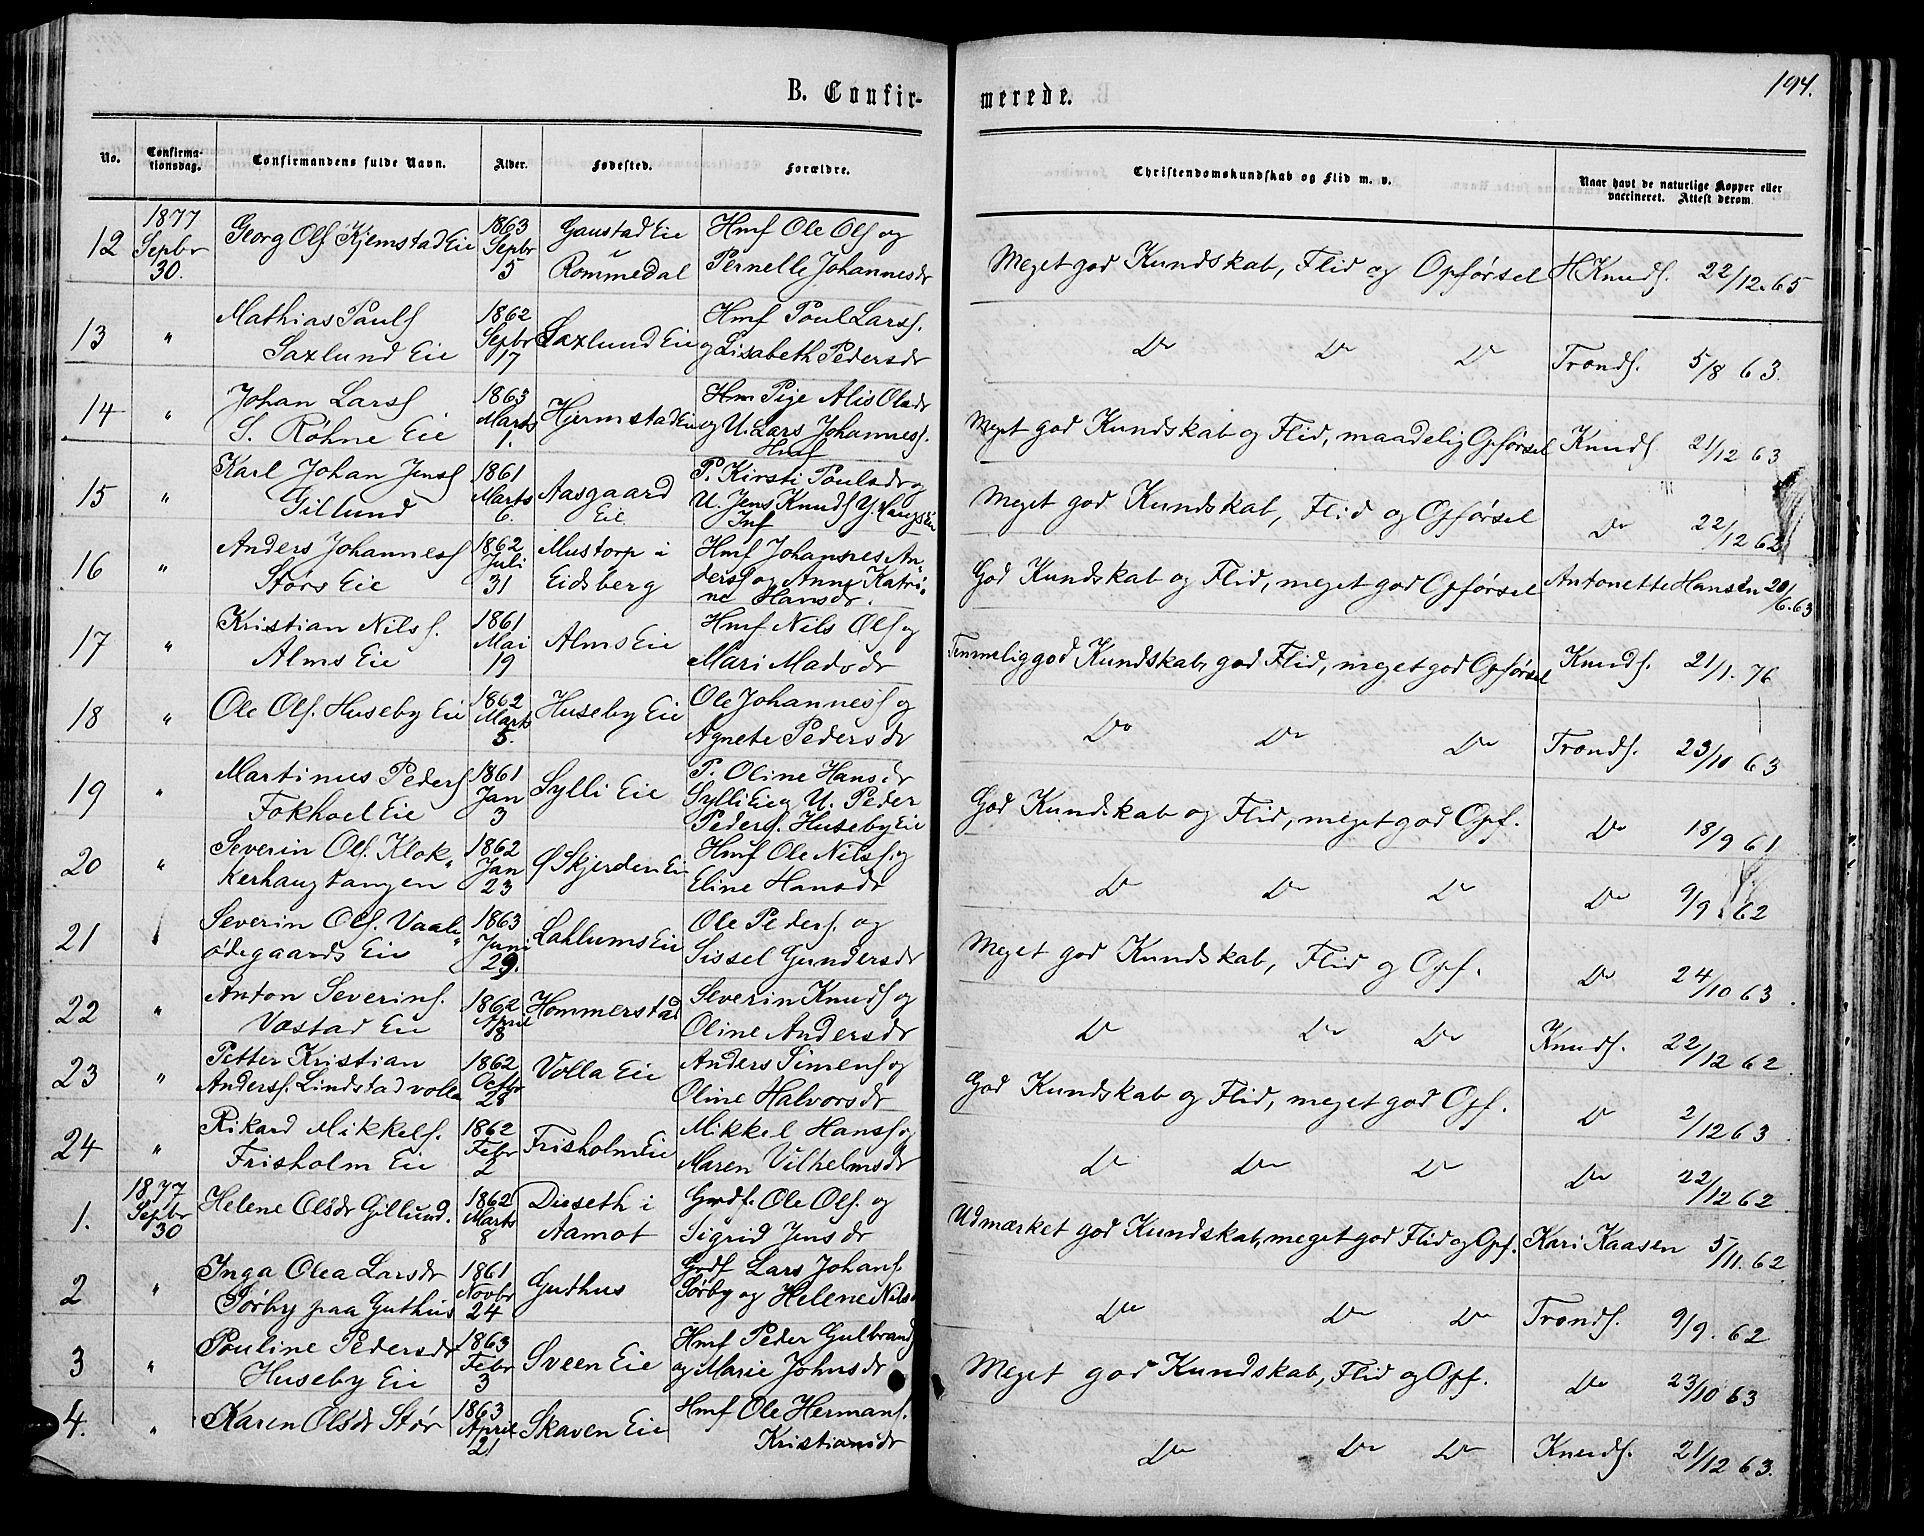 194.
B. Confir-
merede.
No. Confirma-tionsdag. Confirmandens fulde Navn. Alder. Fødested. Forældre. Christendomskundskab og Flid m. v. Naar havt de naturlige Kopper eller vaccineret. Attest derom.
12 1877 Septbr 30. Georg Olſ Kjemstad Eie 1863 Septbr 5 Gaustad Eie i Rommedal Hmf Ole Olſ og Pernelle Johannesdr Meget god Kundskab, Flid og Opførsel H Knudſ. 22/12.65
13 " Mathias Paulſ Saxlund Eie 1862 Septbr 17 Saxlund Eie Hmf Poul Larsſ. og Lisabeth Pedersdr Do Do Do Trondſ. 5/8 63.
14 " Johan Larsſ S. Røhne Eie 1863 Marts 1. Hjermstad Eie Pige Alis Olsdr og U. Lars Johannesſ. Husf Meget god Kundskab og Flid, maadelig Opførsel Knudſ 21/12 63
15 " Karl Johan Jensſ Gillund 1861 Marts 6. Aasgaard Eie P. Kirsti Poulsdr og U. Jens Knudſ Inf Meget god Kundskab, Flid og Opførsel Do 22/12 62
16 " Anders Johannesſ Størs Eie 1862 Juli 31 Mustorp i Eidsberg Hmf Johannes An-dersſ og Anne Katri-ne Hansdr. God Kundskab og Flid, meget god Opførsel Antonette Hansen 20/6.63
17 " Kristian Nilsſ. Alms Eie 1861 Mai 19 Alms Eie Hmf Nils Olſ og Mari Madsdr Temmelig god Kundskab, god Flid, meget god Opførsel Knudſ. 21/1.76
18 " Ole Olſ. Huseby Eie 1862 Marts 5. Huseby Eie Ole Johannesſ og Agnete Pedersdr Do Do Do Trondſ. 23/10 63
19 " Martinus Pedersſ Fokhoel Eie 1861 Jan 3 Sylli Eie P. Oline Hansdr Sylli Eie og U. Peder Pedersſ. Huseby Eie God Kundskab og Flid, meget god Opf. Do 18/9 61
20 " Severin Olſ. Klok-kerhaugtangen 1862 Jan 23 Ø Skjerden Ei Hmf Ole Nilsſ. og Eline Hansdr Do Do Do Do 9/9.62
21 " Severin Olſ. Vaal-ødegaards Eie 1863 Juni 29. Lahlums Eie Ole Pedersſ. og Sissel Gundersdr Meget god Kundskab, Flid og Opf. Do 24/10 63.
22 " Anton Severinſ. Væstad Eie 1862 April 18 Hommerstad Severin Knudſ og Oline Andersdr Do Do Do Knudſ. 22/12 62.
23 " Petter Kristian Andersſ. Lindstadvolla 1862 Octbr 28 Volla Eie Anders Simensſ og Oline Halvorsdr God Kundskab og Flid, meget god Opf. Do 2/12 63.
24 " Rikard Mikkelſ. Frisholm Eie 1862 Febr 2 Frisholm Eie Mikkel Hansſ og Maren Vilhelmsdr Do Do Do Do 22/12 62
1. 1877 Septbr 30 Helene Olsdr Gillund. 1862 Marts 8 Diseth i Aamot Grdf. Ole Olſ. og Sigrid Jensdr Udmærket god Kundskab, meget god Flid og Opf. Kari Kaasen 5/11.62
2 " Inga Olea Larsdr Sørby paa Guthus 1861 Novbr 24 Guthus Grdf Lars Johanſ. Sørby og Helene Nils Do Do Do Trondſ. 9/9.62
3 " Pouline Pedersdr Huseby Eie 1863 Febr 3 Sveen Eie Hmf Peder Gulbrandſ og Marie Johnsdr Meget god Kundskab, Flid og Opf. Do 23/10 63
4. " Karen Olsdr Stør 1863 April 21 Skaven Eie Hmf Ole Hermanſ. Kristiansdr Do Do Do Knudſ. 21/12 63.